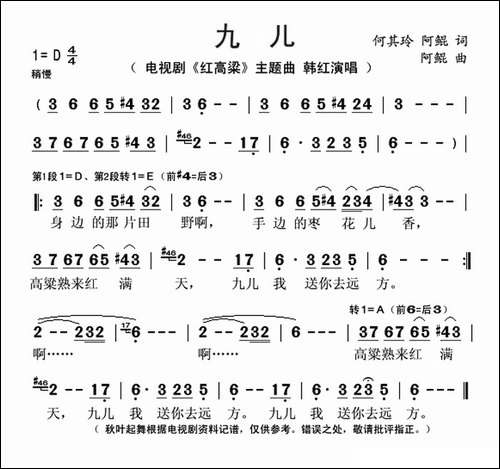 九 儿
1=D 4/4
何其玲 阿鲲 词
稍慢
( 电视剧《红高粱》主题曲 韩红演唱 )
阿鲲 曲
( 3 6 65 #4 32 | 3 6 - - | 3 6 65 #4 24 |
37 67 65 #43 | #46 2 - - 17 | 6 · 3 23 5 | 6 - - - ) |
第1段1=D、第2段转1=E (前#4=后3)
|: 3 6 65 #4 32 | 3 6 - - | 3 6 65 #4 234 | #43 3 - - |
身 边 的 那 片 田 野啊, 手 边 的 枣 花 儿 香,
37 67 65 #43 | #46 2 - - 17 | 6 · 3 23 5 | 6 - - - :|
高粱熟来红 满 天, 九儿 我 送你去远 方。
转1=A (前6=后3)
2 - - 232 | 17 6 - - - | 2 - - 232 | 6 - - - | 37 67 65 #43 |
啊…… 啊…… 高粱熟来红 满
#46 2 - - 17 | 6 · 3 23 5 | 6 - - 17 | 6 · 3 23 5 | 6 - - - |
天, 九儿 我 送你去远 方。 九儿 我 送你去远 方。
( 秋叶起舞根据电视剧资料记谱,仅供参考。错误之处,敬请批评指正。)